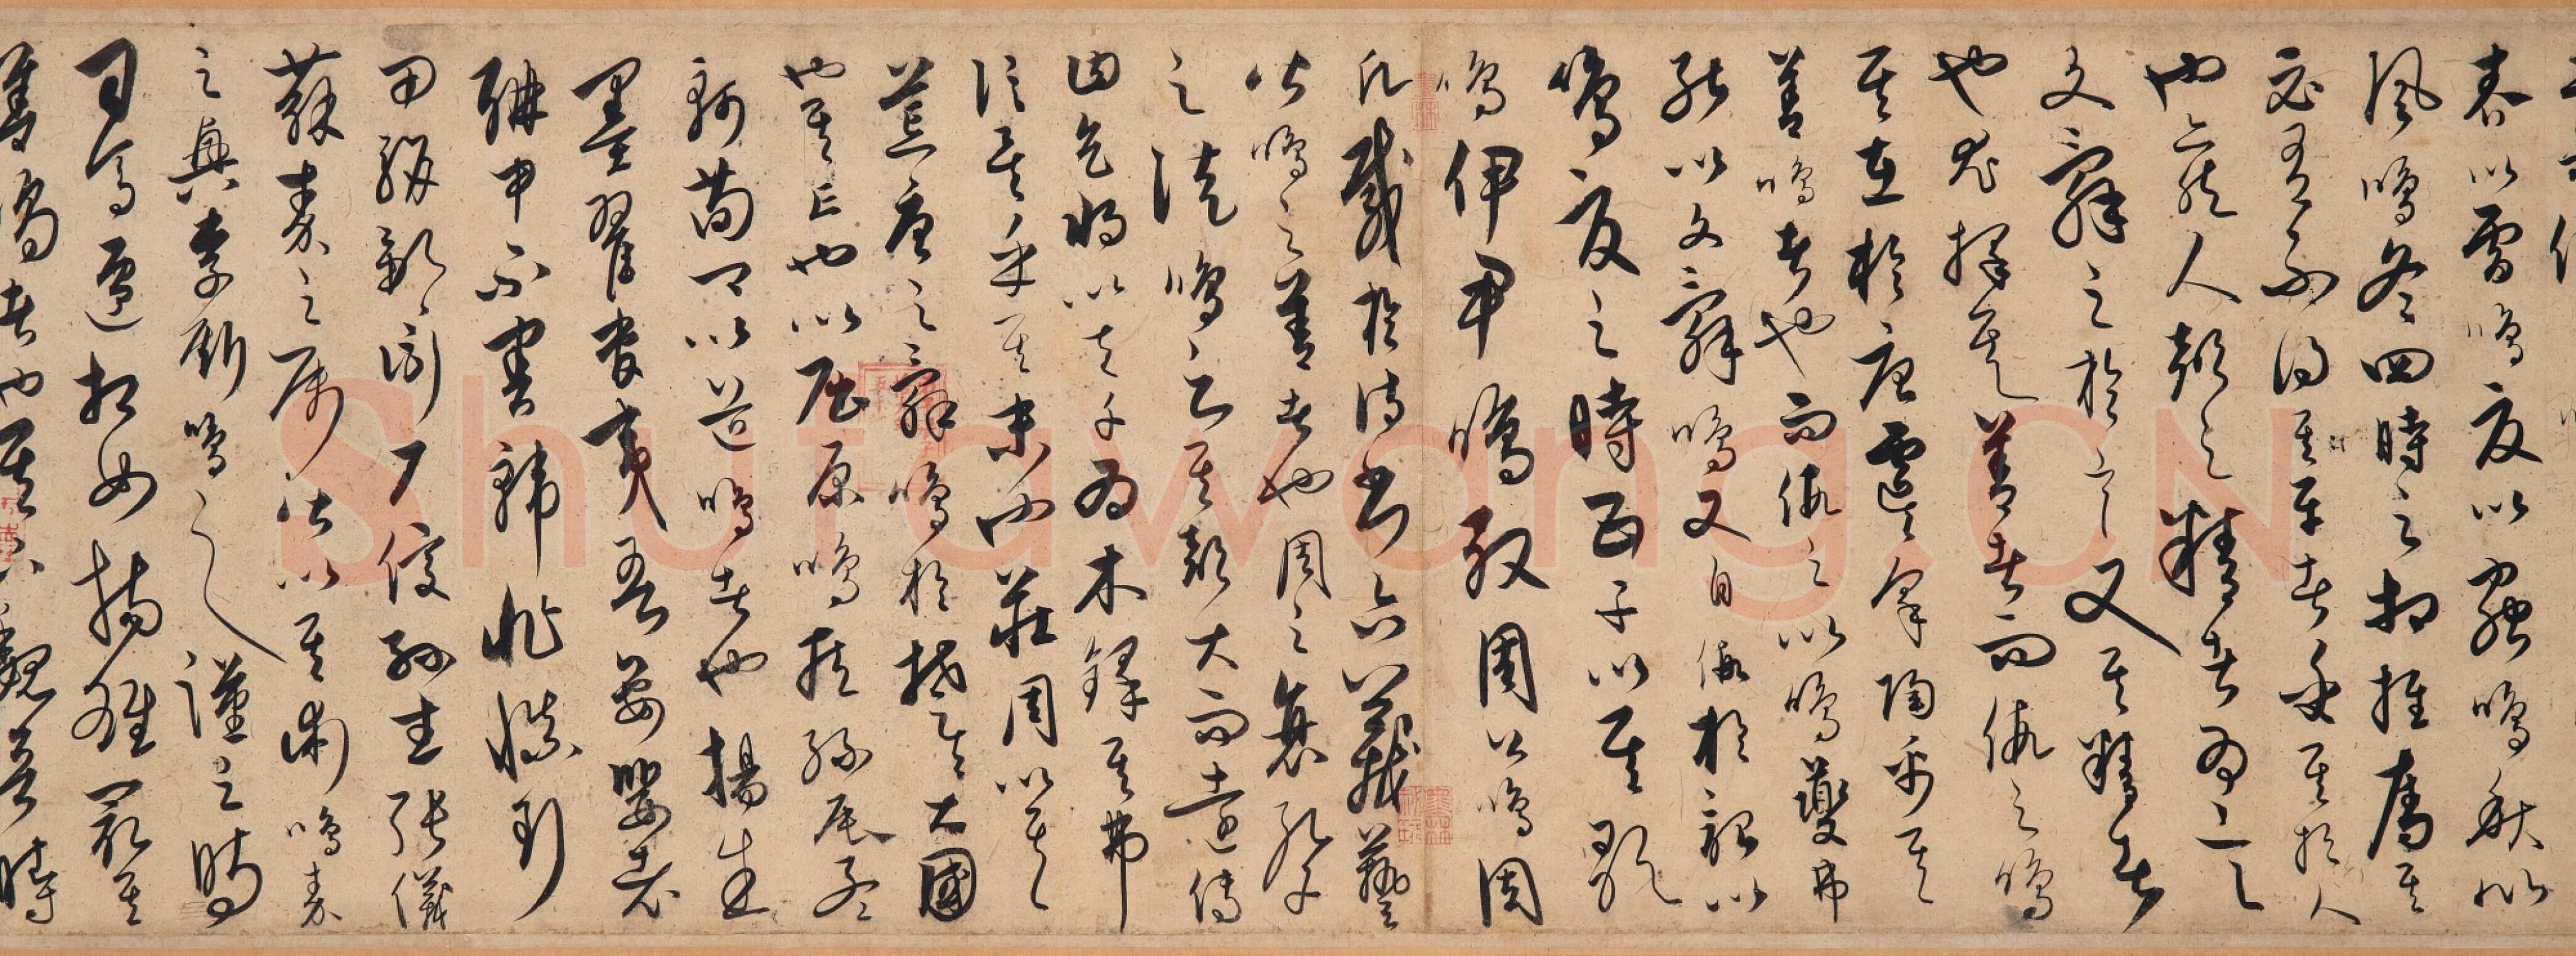 春以雷鳴夏以蟲鳴秋以
風鳴冬四時之相推奪其
必有不得其平者乎其於人
也亦然人聲之精者為言
文辭之於言又其精者
也尤擇其善者而假之鳴
其在唐虞皋陶禹其
善鳴者也而假之以鳴夔弗
能以文辭鳴又自假於韶以
鳴夏之時五子以其歌
鳴伊尹鳴殷周公鳴周
凡載於詩書六藝
皆鳴之善者也周之衰孔子
之徒鳴之其聲大而遠傳
曰天將以夫子為木鐸其弗
信矣乎其末也莊周以其
荒唐之辭鳴於楚楚大國
也其亡也以屈原鳴臧孫辰孟
軻荀卿以道鳴者也楊朱
墨翟管夷吾晏嬰老
聃申不害韓非慎到
田駢鄒衍尸佼孫武張儀
蘇秦之屬皆以其術鳴秦
之興李斯鳴之漢之時
司馬遷相如揚雄最其
善鳴者也其下魏晉時
Shufawang.CN